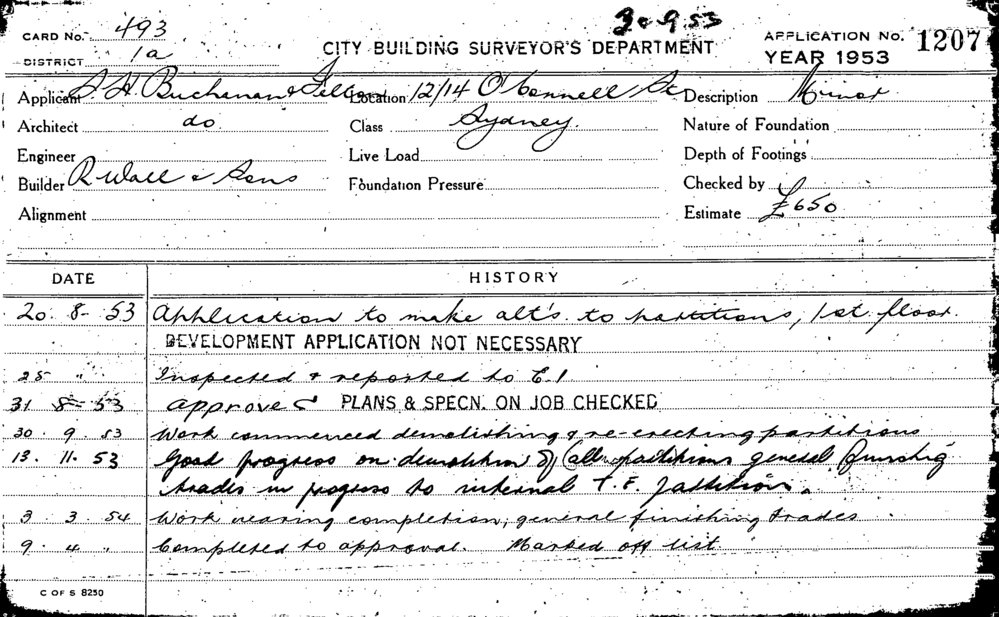 3 . 9 . 53
CARD No. 493
CITY BUILDING SURVEYOR'S DEPARTMENT
APPLICATION No. 1207
DISTRICT 1a
YEAR 1953
Applicant A. H. Buchanan & Location 12/14 O'Connell St Description Minor
Architect do Class Sydney. Nature of Foundation
Engineer Live Load Depth of Footings
Builder R Wall & Sons Foundation Pressure Checked by
Alignment Estimate £650
DATE HISTORY
20. 8- 53 Application to make alt's. to partitions, 1st. floor.
DEVELOPMENT APPLICATION NOT NECESSARY
25 " Inspected & reported to C.I
31 8- 53 approved PLANS & SPECN. ON JOB CHECKED
30. 9. 53 Work commenced demolishing & re-erecting partitions
13. 11. 53 Good progress on demolition of partitions general finishing
trades in progress to internal T.F. partitions.
3. 3. 54 Work nearing completion, general finishing trades
9. 4 " Completed to approval. Marked off list.
C OF S 8250